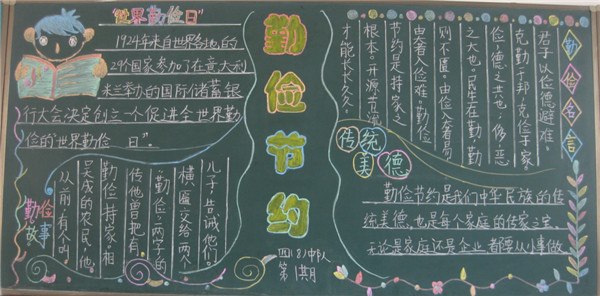 "世界勤俭日"
1924年来自世界各地的
29个国家参加了在意大利
米兰举办的国际储蓄银
行大会决定创立一个促进全世界勤
俭的"世界勤俭 日"。
勤俭
故事
从前,有个叫
吴成的农民,他
勤俭持家,相
传他曾把有
"勤俭"二字的
横匾交给两个
儿子,告诫他们。
勤俭节约
四(8)中队
第1期
勤俭名言
君子以俭德避难。
克勤于邦,克俭于家。
俭,德之共也;侈,恶
之大也。民生在勤,勤
则不匮。由俭入奢易,
由奢入俭难。勤俭
节约是持家之
根本。开源节流
才能长长久久。
传统
美德
勤俭节约是我们中华民族的传
统美德,也是每个家庭的传家之宝,
无论是家庭还是企业,都要从小事做